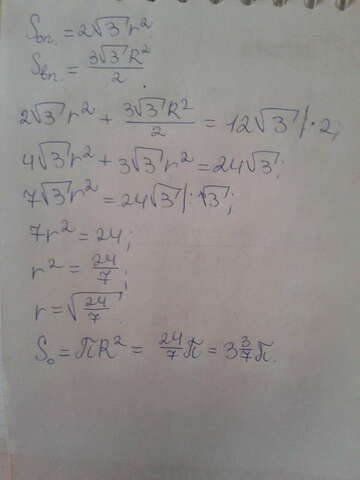 Sоп. = 2√3 r².
Sвп. = 3√3 R²/2
2√3 r² + 3√3 R²/2 = 12√3 /·2;
4√3 r² + 3√3 r² = 24√3;
7√3 r² = 24√3 /:√3;
7r² = 24;
r² = 24/7;
r = √(24/7)
S₀ = πR² = 24/7 π = 3 3/7 π.